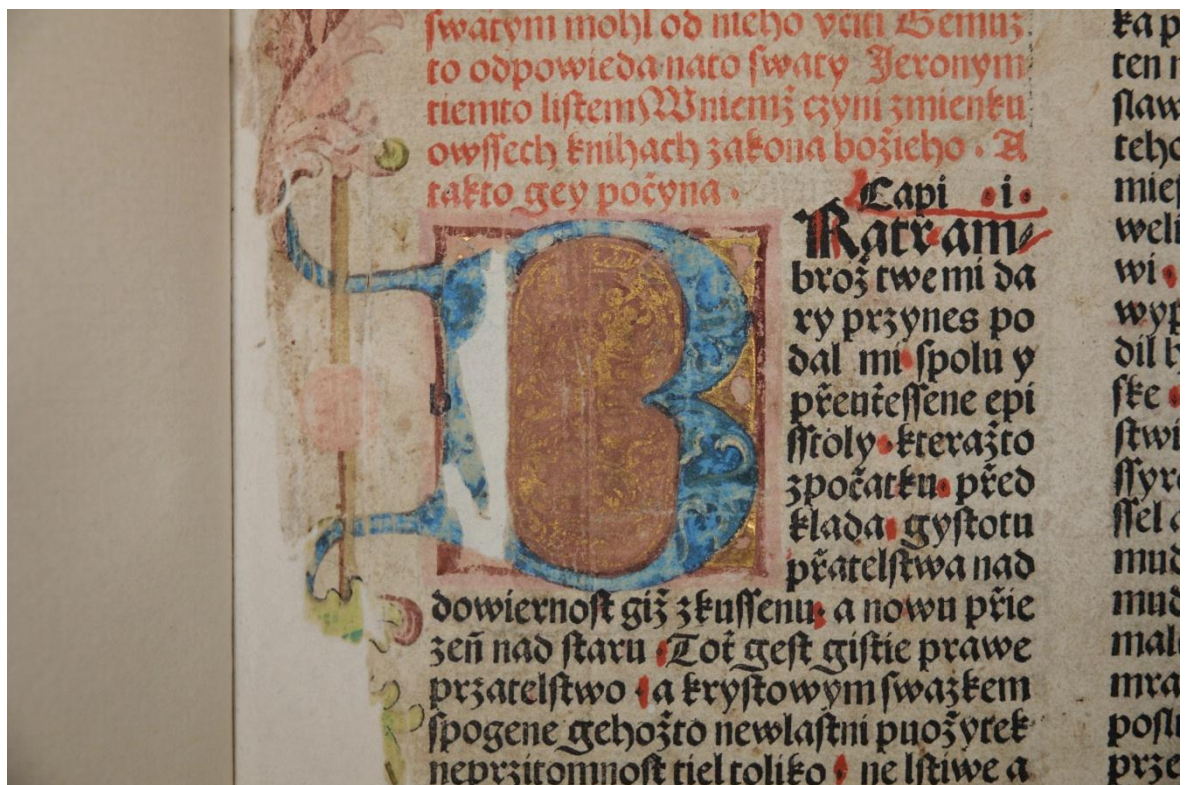 swatym mohl od nieho vciti Gemuz
to odpowieda nato swaty Jeronym
tiemto listem Wniemž czyni zmienku
owssech knihach zakona božieho · A
takto gey počyna ·
Capi · i ·
B Ratr am⸗
brož twe mi da
ry przynes po
dal mi spolu y
přeutěssene epi
sstoly · kteražto
zpočatku · před
klada gystotu
přatelstwa nad
dowiernost giž zkussenu · a nowu přie
zeň nad staru · Toť gest gistie prawe
przatelstwo · a krystowym swazkem
spogene gehožto newlastni puožytek
neprzitomnost tiel toliko · ne lstiwe a
ka p
ten
slaw
teho
mies
weli
wi ·
wyp
dil h
ske ·
stwi
ssyr
ssel a
mud
mud
mal
mra
poslu
prze